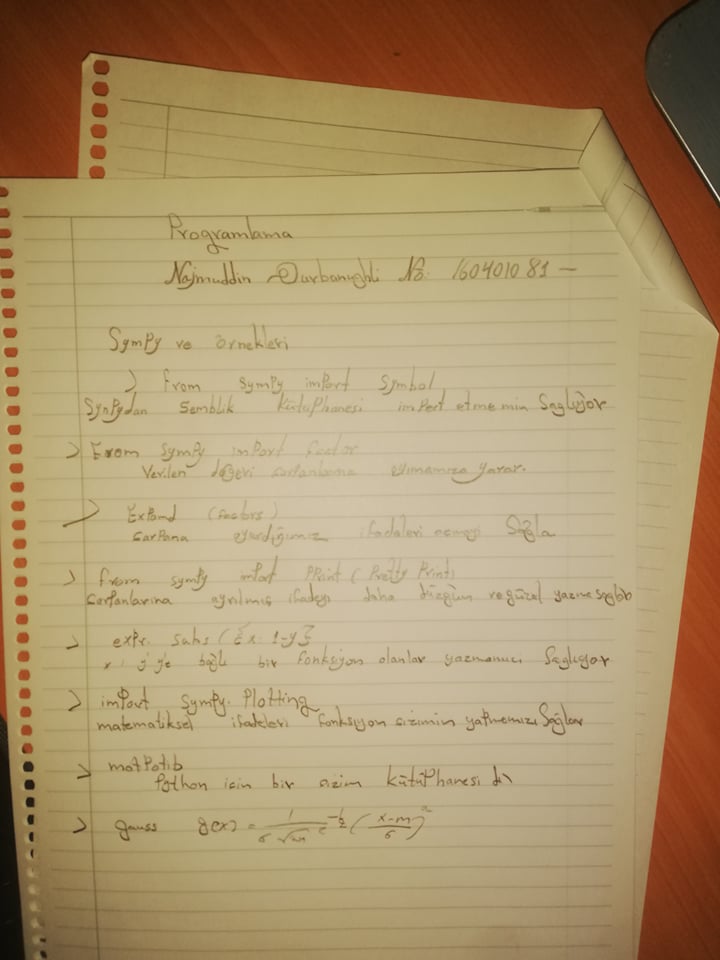 Programlama
Najmuddin Qurbanughli No: 160401081 —
Sympy ve örnekleri
> from sympy import Symbol
Sympydan Semblik kütüphanesi import etmemin Saglıyor
> From Sympy import factor
Verilen değeri carlanbama ayımamıza yarar.
> Expand (factors)
Carpana ayırdığımız ifadeleri açmayı Sağla
> from sympy import PPrint (Pretty Print)
Carpanlarına ayrılmış ifadeyi daha düzgün ve güzel yazma
> expr. Subs ({x: 1-y})
x, y'ye bağlı bir fonksiyon olanlar yazmamızı Saglıyor
> import Sympy. Plotting
matematiksel ifadeleri fonksiyon cizimin yapmemızı Sağlar
> matPotib
Python icin bir cizim kütüPhanesi dir
> gauss g(x) = 1/(σ√2π) e^-½ ((x-m)/σ)^2